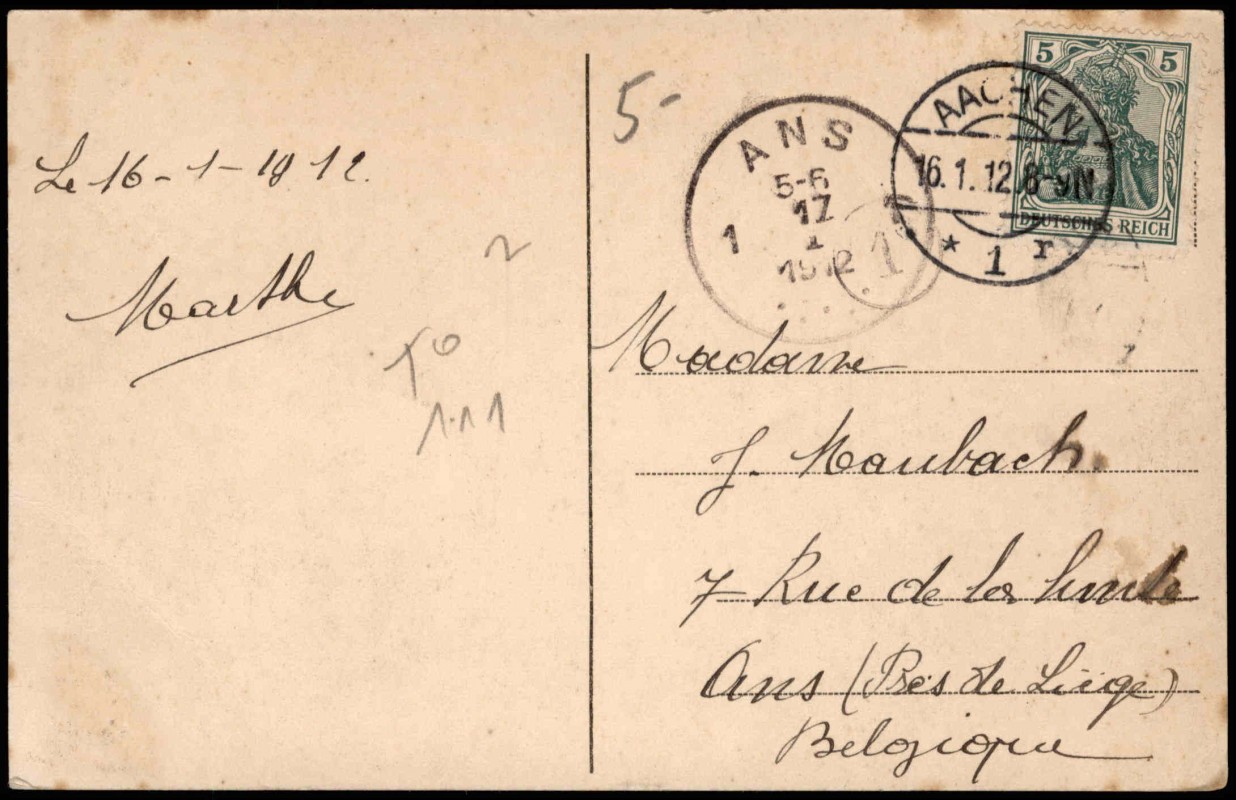 Le 16 - 1 - 1912.
Marthe
5-
ANS
5-6
17
1
1
1912
1
AACHEN
16.1.12. 8-9N
* 1 r
5 5
DEUTSCHES REICH
111
Madame
J. Maubach.
7 Rue de la
Ans (Près de Liège)
Belgique